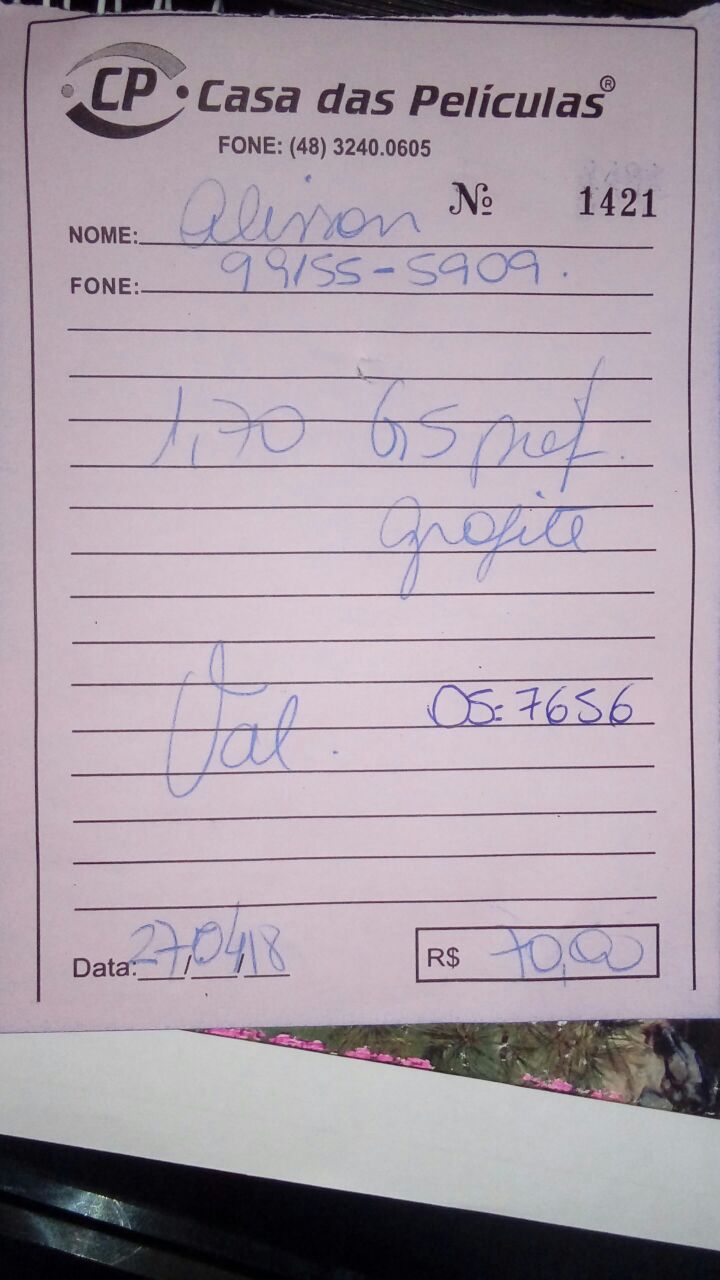 CP Casa das Películas®
FONE: (48) 3240.0605
Nº 1421
NOME: Alisson
FONE: 99155-5909.
1,70 G5 pref.
grafite
Val.
OS: 7656
Data: 27/04/18
R$ 70,00